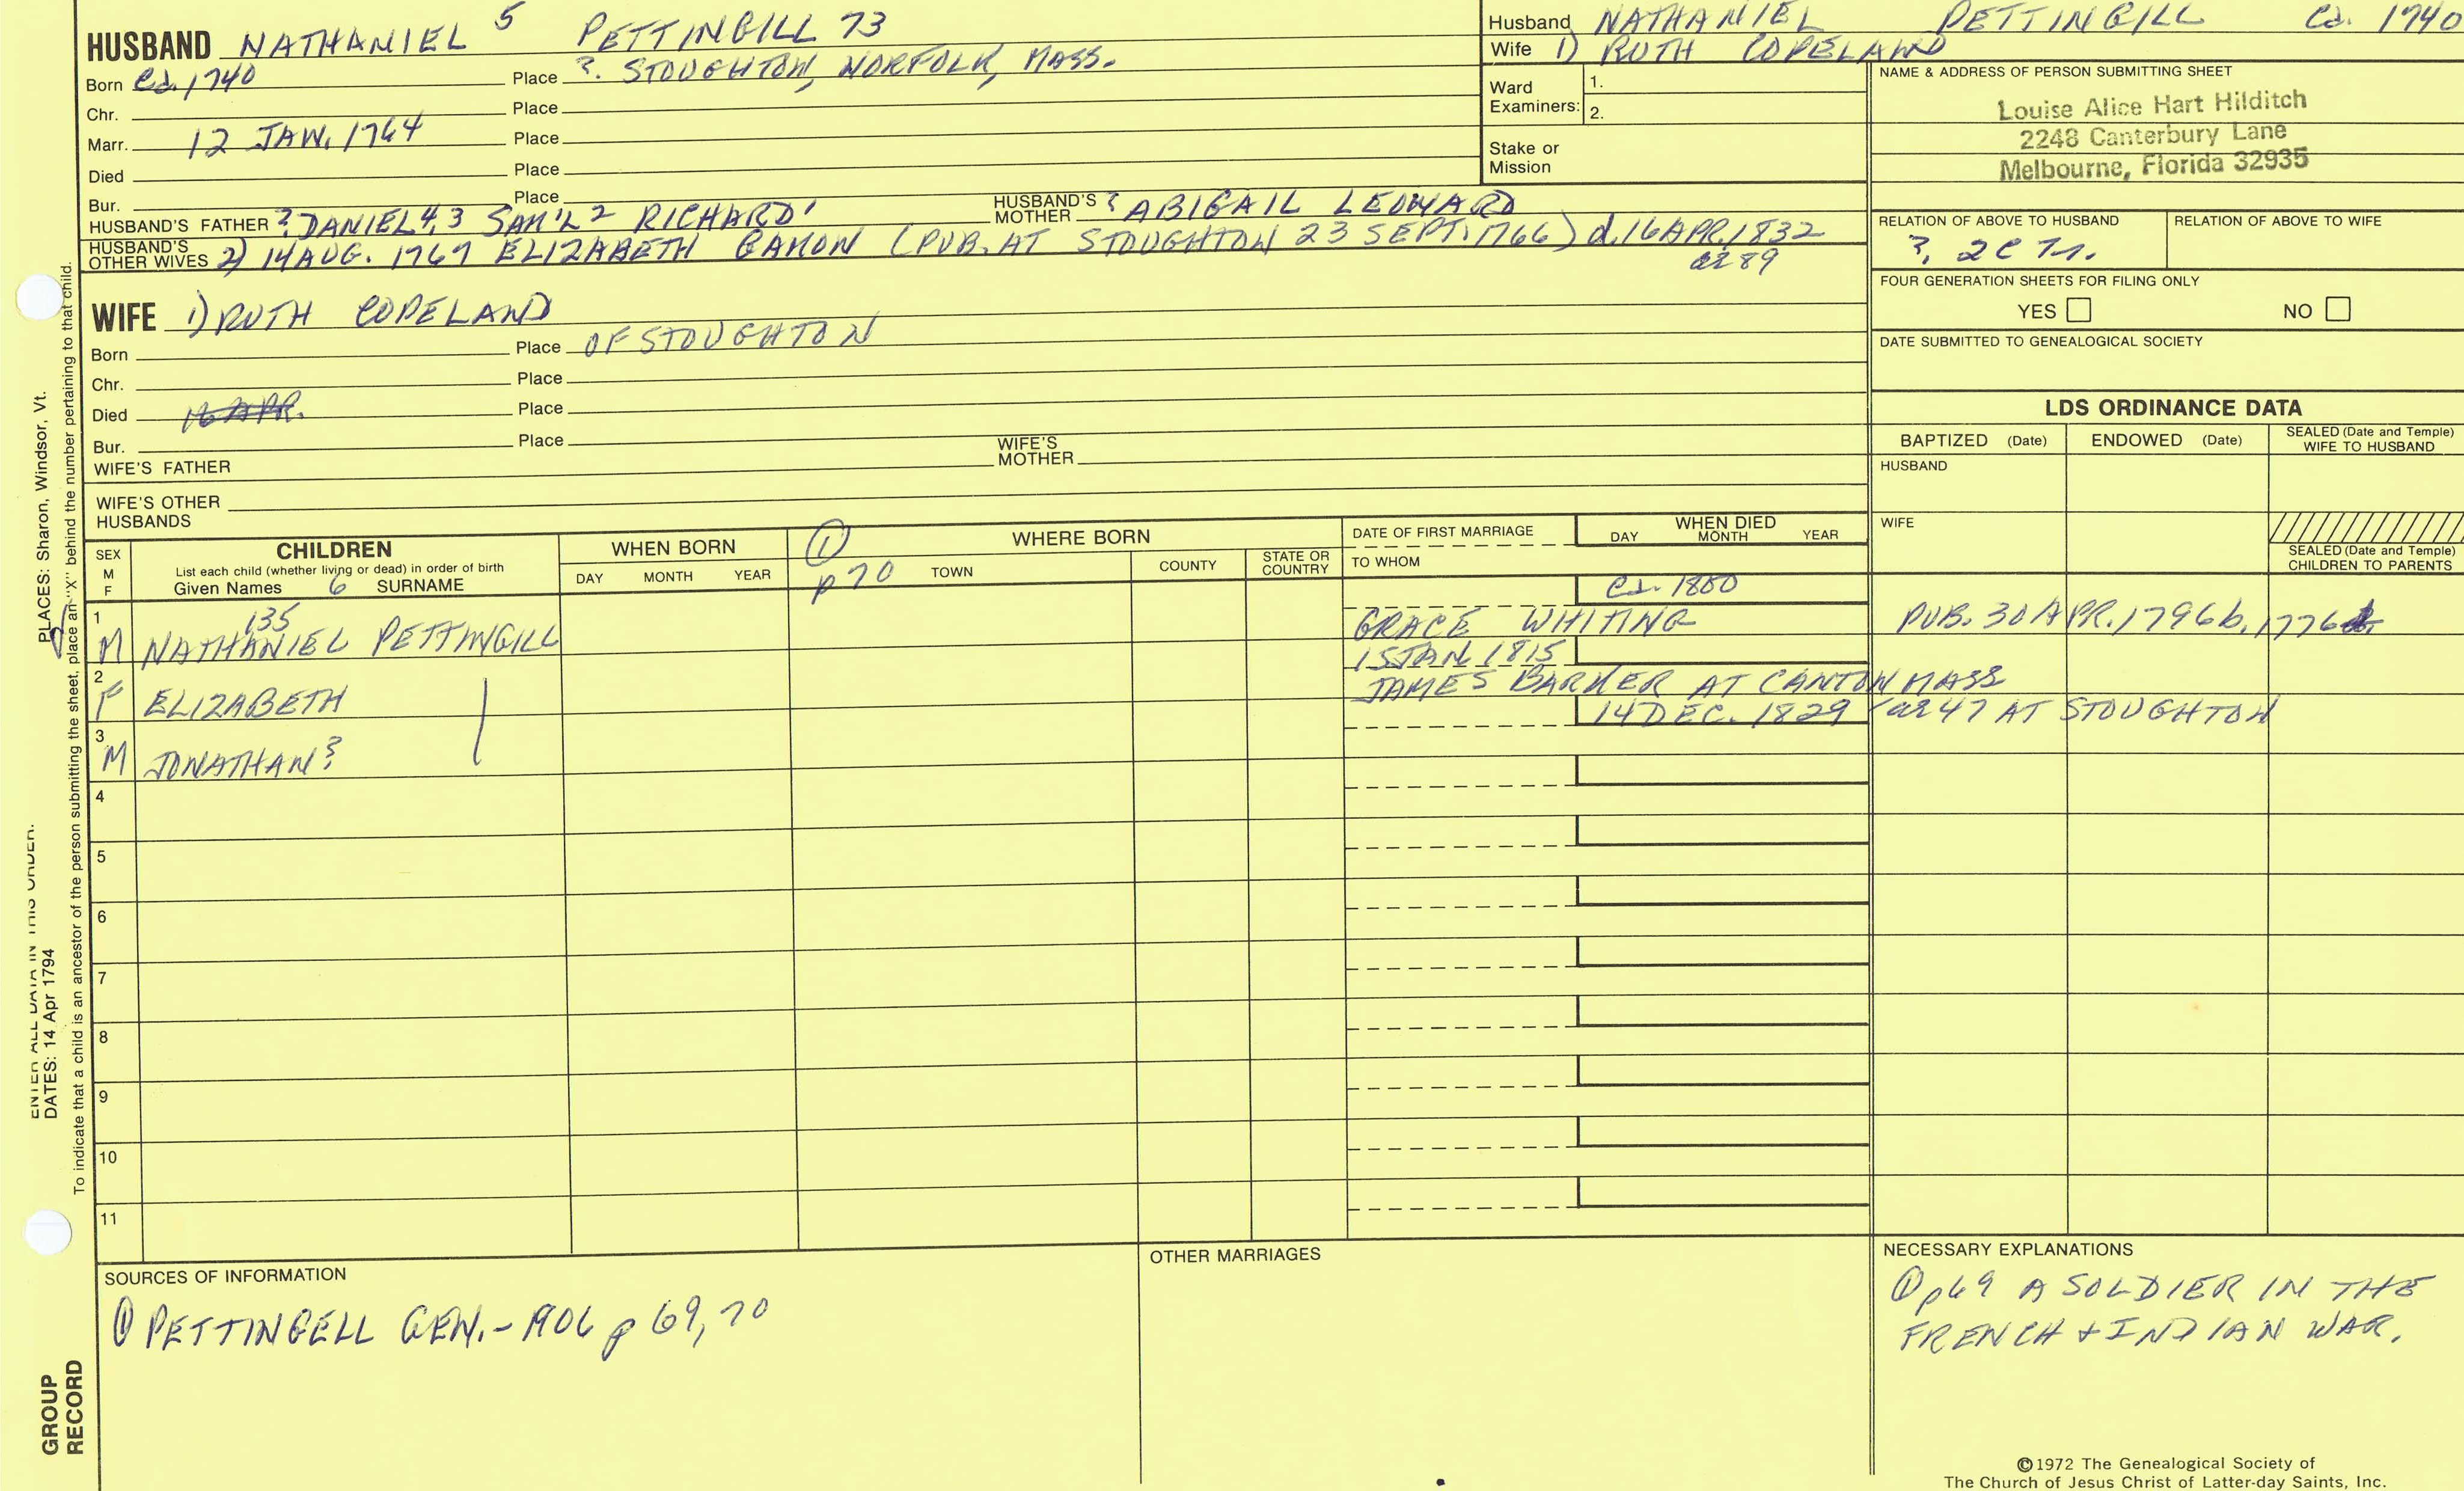 HUSBAND NATHANIEL 5 PETTINGILL 73
Born Ca. 1740 Place ?. STOUGHTON, NORFOLK, MASS.
Chr. Place
Marr. 12 JAN. 1764 Place
Died Place
Bur. Place
HUSBAND'S FATHER ? DANIEL 4, 3 SAM'L 2 RICHARD 1 HUSBAND'S MOTHER ? ABIGAIL LEONARD
HUSBAND'S OTHER WIVES 2) 14 AUG. 1767 ELIZABETH GAMON (PUB. AT STOUGHTON 23 SEPT. 1766) d. 16 APR. 1832
ae 89
Husband NATHANIEL PETTINGILL Ca. 1740
Wife 1) RUTH COPELAND
Ward Examiners: 1.
2.
Stake or Mission
NAME & ADDRESS OF PERSON SUBMITTING SHEET
Louise Alice Hart Hilditch
2248 Canterbury Lane
Melbourne, Florida 32935
RELATION OF ABOVE TO HUSBAND RELATION OF ABOVE TO WIFE
?. 2C
FOUR GENERATION SHEETS FOR FILING ONLY
YES NO
DATE SUBMITTED TO GENEALOGICAL SOCIETY
WIFE 1) RUTH COPELAND
Born Place OF STOUGHTON
Chr. Place
Died 16 APR. Place
Bur. Place
WIFE'S FATHER WIFE'S MOTHER
WIFE'S OTHER HUSBANDS
LDS ORDINANCE DATA
BAPTIZED (Date) ENDOWED (Date) SEALED (Date and Temple) WIFE TO HUSBAND
HUSBAND
WIFE
SEALED (Date and Temple) CHILDREN TO PARENTS
SEX M F
CHILDREN
List each child (whether living or dead) in order of birth
Given Names 6 SURNAME
WHEN BORN
DAY MONTH YEAR
1 p 70
WHERE BORN
TOWN COUNTY STATE OR COUNTRY
DATE OF FIRST MARRIAGE
TO WHOM
WHEN DIED
DAY MONTH YEAR
1 M 135 NATHANIEL PETTINGILL GRACE WHITING PUB. 30 APR. 1796 b. 1776
2 F ELIZABETH 15 JAN 1815
JAMES BARKER AT CANTON MASS
3 M JONATHAN? 14 DEC. 1829 ae 47 AT STOUGHTON
4
5
6
7
8
9
10
11
SOURCES OF INFORMATION
1 PETTINGELL GEN. - 1906 p 69, 70
OTHER MARRIAGES
NECESSARY EXPLANATIONS
1 p69 A SOLDIER IN THE
FRENCH + INDIAN WAR.
©1972 The Genealogical Society of
The Church of Jesus Christ of Latter-day Saints, Inc.
DATES: 14 Apr 1794
PLACES: Sharon, Windsor, Vt.
To indicate that a child is an ancestor of the person submitting the sheet, place an "X" behind the number pertaining to that child.
GROUP
RECORD